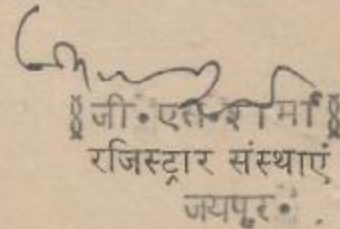 जी॰ एल॰ शर्मा
रजिस्ट्रार संस्थाएं
जयपुर॰